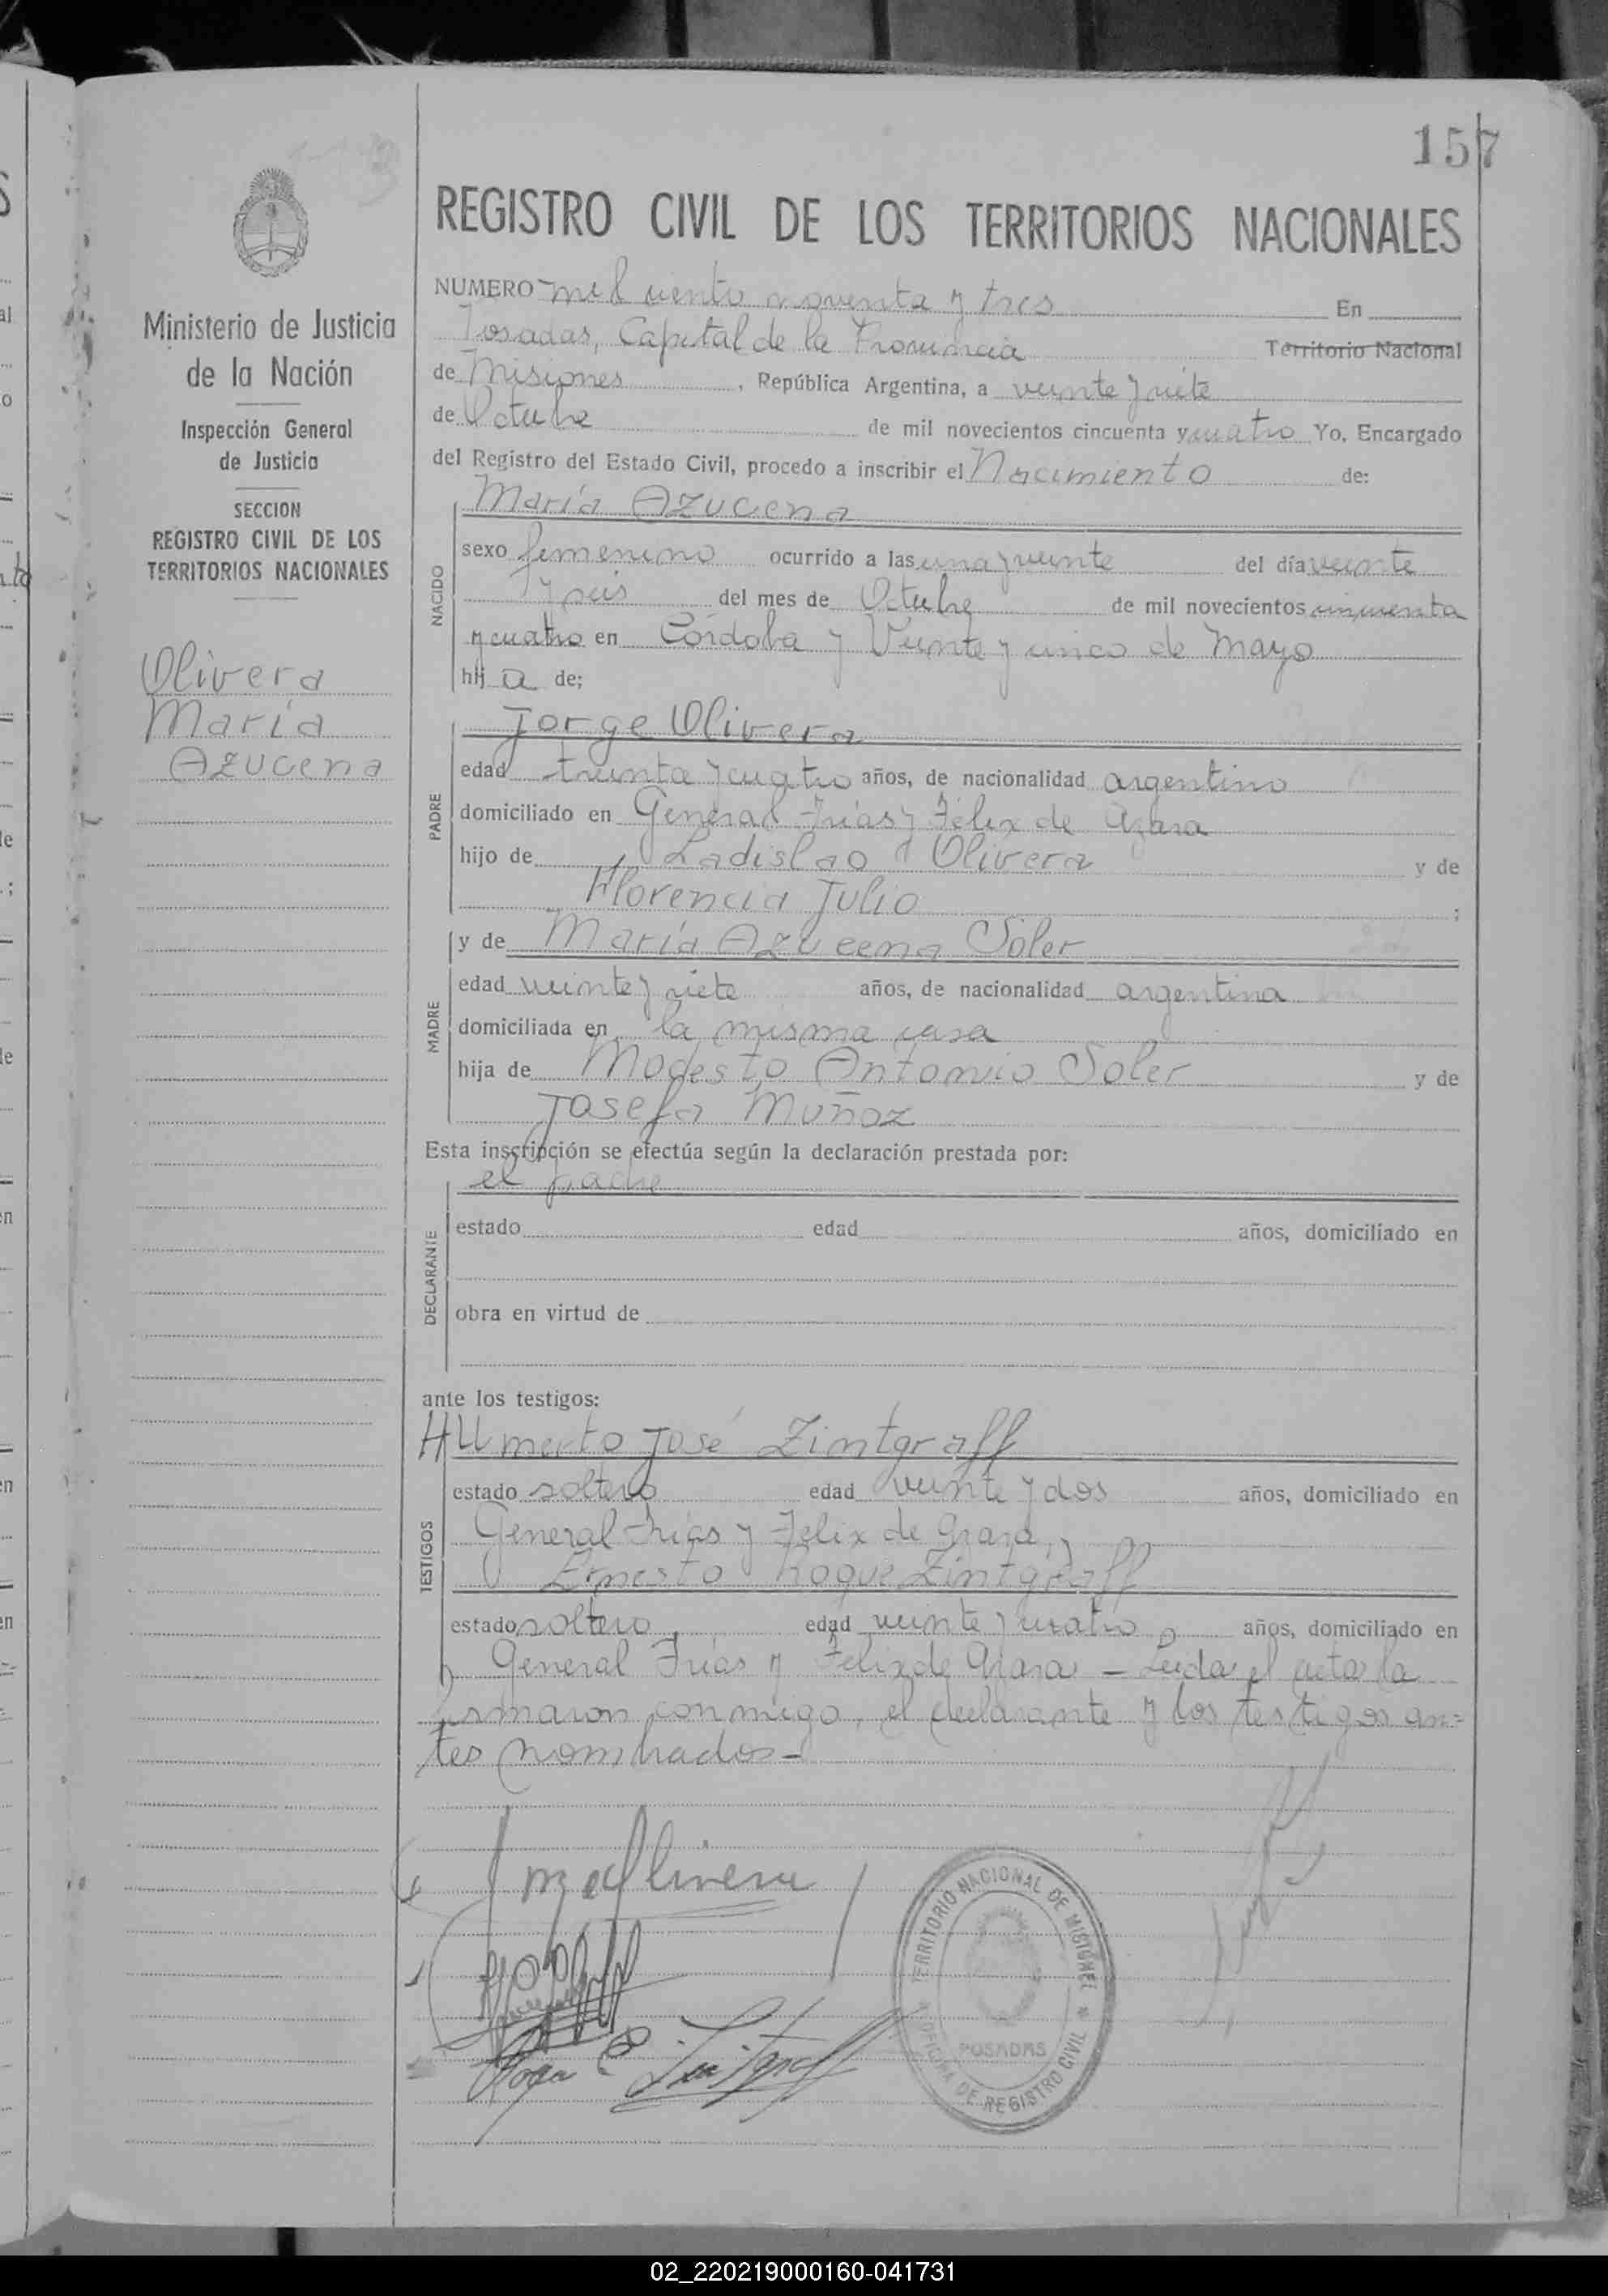 157
REGISTRO CIVIL DE LOS TERRITORIOS NACIONALES
Ministerio de Justicia
de la Nación
Inspección General
de Justicia
SECCION
REGISTRO CIVIL DE LOS
TERRITORIOS NACIONALES
Olivera
María
Azucena
NUMERO mil ciento noventa y tres En
Posadas, Capital de la Provincia Territorio Nacional
de Misiones, República Argentina, a veinte y siete
de Octubre de mil novecientos cincuenta y cuatro Yo, Encargado
del Registro del Estado Civil, procedo a inscribir el Nacimiento de:
María Azucena
NACIDO
sexo femenino ocurrido a las una y veinte del día veinte
y seis del mes de Octubre de mil novecientos cincuenta
y cuatro en Córdoba y Veinte y cinco de Mayo
hij a de;
Jorge Olivera
PADRE
edad treinta y cuatro años, de nacionalidad argentino
domiciliado en General Frías y Félix de Azara
hijo de Ladislao Olivera y de
Florencia Julio ;
y de María Azucena Soler
MADRE
edad veinte y siete años, de nacionalidad argentina
domiciliada en la misma casa
hija de Modesto Antonio Soler y de
Josefa Muñoz
Esta inscripción se efectúa según la declaración prestada por:
el padre
DECLARANTE
estado edad años, domiciliado en
obra en virtud de
ante los testigos:
José Zintgraff
TESTIGOS
estado soltero edad veinte y dos años, domiciliado en
General Frías y Félix de Azara, y
Ernesto Roque Zintgraff
estado soltero edad veinte y cuatro años, domiciliado en
General Frías y Félix de Azara - Leída el acta la
firmaron conmigo, el declarante y los testigos an=
tes nombrados-
TERRITORIO NACIONAL DE MISIONES
POSADAS
OFICINA DE REGISTRO CIVIL
02_220219000160-041731